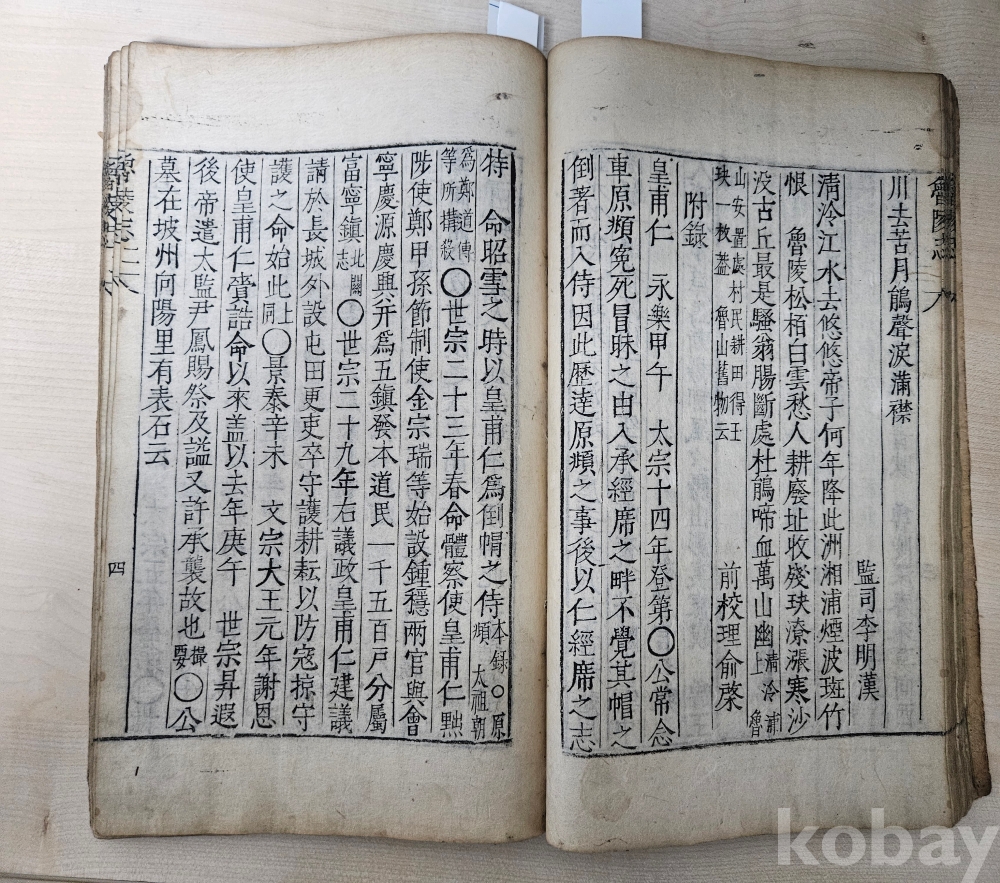 魯陵志二
川去苦月鵑聲淚滿襟
監司李明漢
淸泠江水去悠悠帝子何年降此洲湘浦煙波斑竹
恨 魯陵松栢白雲愁人耕廢址收殘玦潦漲寒沙
没古丘最是騷翁膓斷處杜鵑啼血萬山幽 淸泠浦上魯
山安置處村民耕田得玉玦一枚盖魯山舊物云 前校理俞棨
附錄
皇甫仁 永樂甲午 太宗十四年登第〇公常念
車原頫冤死冒昧之由入承經席之畔不覺其帽之
倒著而入侍因此歷達原頫之事後以仁經席之志
特 命昭雪之時以皇甫仁爲倒帽之侍 本錄〇原頫太祖朝
爲鄭道傳等所構殺〇世宗二十三年春命體察使皇甫仁黜
陟使鄭甲孫節制使金宗瑞等始設鍾穩兩官與會
寧慶源慶興幷爲五鎭發本道民一千五百戸分屬
富寧鎭 北關志〇世宗二十九年右議政皇甫仁建議
請於長城外設屯田更吏卒守護耕耘以防寇掠守
護之命始此 上同〇景泰辛未 文宗大王元年謝恩
使皇甫仁賫誥命以來盖以去年庚午 世宗昇遐
後帝遣太監尹鳳賜祭及謚又許承襲故也 撮要〇公
墓在坡州向陽里有表石云
魯陵志二
四
kobay